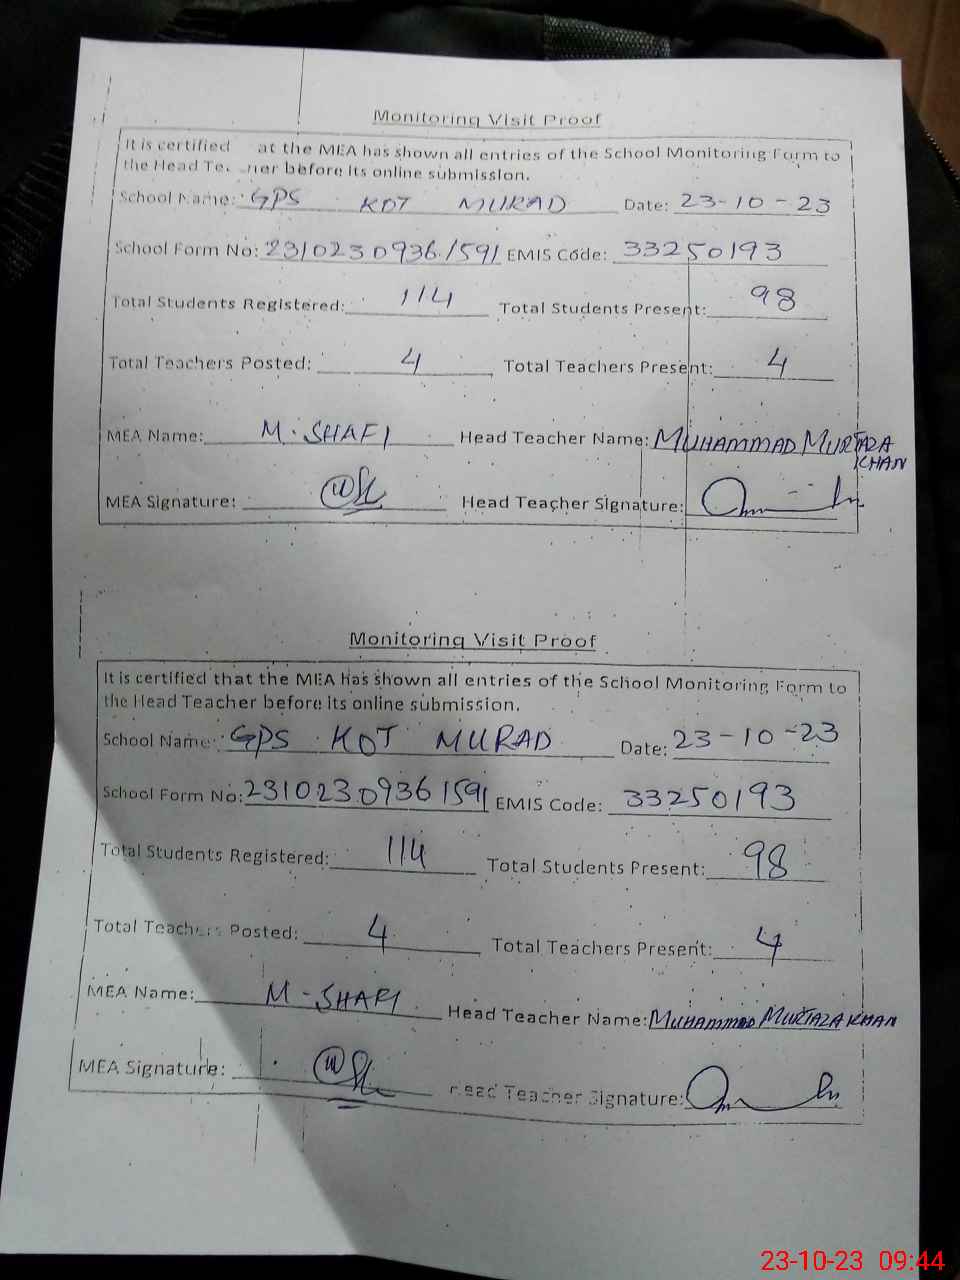 Monitoring Visit Proof
It is certified at the MEA has shown all entries of the School Monitoring Form to
the Head before its online submission.
School Name: GPS KOT MURAD Date: 23-10-23
School Form No: 23102309361591 EMIS Code: 33250193
Total Students Registered: 114 Total Students Present: 98
Total Teachers Posted: 4 Total Teachers Present: 4
MEA Name: M. SHAFI Head Teacher Name: MUHAMMAD MURTAZA
KHAN
MEA Signature: Head Teacher Signature:
Monitoring Visit Proof
It is certified that the MEA has shown all entries of the School Monitoring Form to
the Head Teacher before its online submission.
School Name: GPS KOT MURAD Date: 23-10-23
School Form No: 23102309361591 EMIS Code: 33250193
Total Students Registered: 114 Total Students Present: 98
Total Teachers Posted: 4 Total Teachers Present: 4
MEA Name: M-SHAFI Head Teacher Name: MUHAMMAD MURTAZA KHAN
MEA Signature: Head Teacher Signature:
23-10-23 09:44